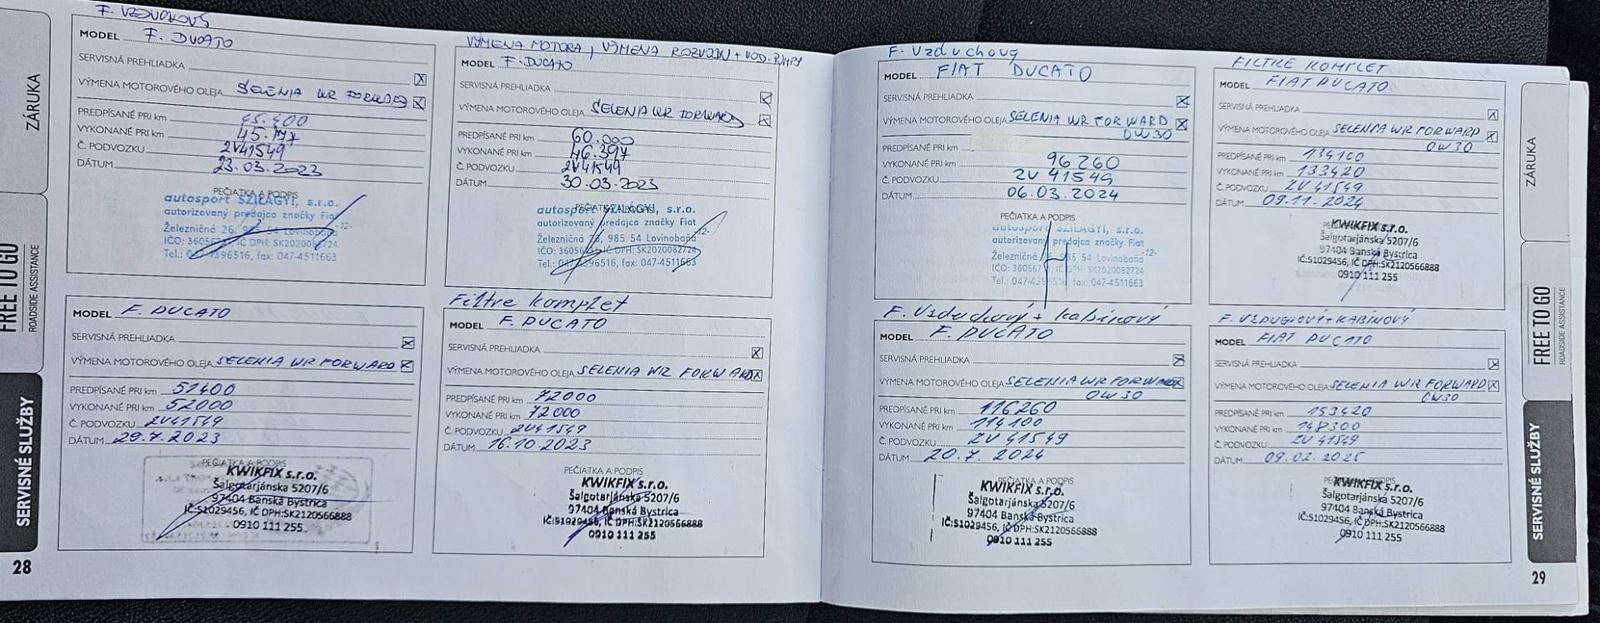 ZÁRUKA
FREE TO GO
ROADSIDE ASSISTANCE
SERVISNÉ SLUŽBY
28
F. VZDUCHOVÝ
MODEL F. DUCATO
SERVISNÁ PREHLIADKA
VÝMENA MOTOROVÉHO OLEJA SELENIA WR FORWARD
PREDPÍSANÉ PRI km 45.400
VYKONANÉ PRI km 45.
Č. PODVOZKU 2V41549
DÁTUM 23.03.2023
PEČIATKA A PODPIS
autosport SZILÁGYI, s.r.o.
autorizovaný predajca značky Fiat
Železničná 26, 985 54 Lovinobaňa
-12-
IČO: 3605 IČ DPH: SK2020082724
Tel.: 047-4396516, fax: 047-4511663
VÝMENA MOTORA, VÝMENA ROZVODOV + VOD. PUMPY
MODEL F. DUCATO
SERVISNÁ PREHLIADKA
VÝMENA MOTOROVÉHO OLEJA SELENIA WR FORWARD
PREDPÍSANÉ PRI km 60.000
VYKONANÉ PRI km 46.397
Č. PODVOZKU 2V41549
DÁTUM 30.03.2023
PEČIATKA A PODPIS
autosport SZILÁGYI, s.r.o.
autorizovaný predajca značky Fiat
Železničná 26, 985 54 Lovinobaňa
-12-
IČO: 3605 IČ DPH: SK2020082724
Tel.: 047-4396516, fax: 047-4511663
MODEL F. DUCATO
SERVISNÁ PREHLIADKA
VÝMENA MOTOROVÉHO OLEJA SELENIA WR FORWARD
PREDPÍSANÉ PRI km 51400
VYKONANÉ PRI km 52000
Č. PODVOZKU 2V41549
DÁTUM 29.7.2023
PEČIATKA A PODPIS
KWIKFIX s.r.o.
Šalgotarjánska 5207/6
97404 Banská Bystrica
IČ:51029456, IČ DPH:SK2120566888
0910 111 255
Filtre komplet
MODEL F. DUCATO
SERVISNÁ PREHLIADKA
VÝMENA MOTOROVÉHO OLEJA SELENIA WR FORWARD
PREDPÍSANÉ PRI km 72000
VYKONANÉ PRI km 72000
Č. PODVOZKU 2V41549
DÁTUM 16.10.2023
PEČIATKA A PODPIS
KWIKFIX s.r.o.
Šalgotarjánska 5207/6
97404 Banská Bystrica
IČ:51029456, IČ DPH:SK2120566888
0910 111 255
F. Vzduchový
MODEL FIAT DUCATO
SERVISNÁ PREHLIADKA
VÝMENA MOTOROVÉHO OLEJA SELENIA WR FORWARD
0W30
PREDPÍSANÉ PRI km
VYKONANÉ PRI km 96260
Č. PODVOZKU 2V 41549
DÁTUM 06.03.2024
PEČIATKA A PODPIS
autosport SZILÁGYI, s.r.o.
autorizovaný predajca značky Fiat
Železničná 26, 985 54 Lovinobaňa
-12-
IČO: 3605 IČ DPH: SK2020082724
Tel.: 047-4396516, fax: 047-4511663
FILTRE KOMPLET
MODEL FIAT DUCATO
SERVISNÁ PREHLIADKA
VÝMENA MOTOROVÉHO OLEJA SELENIA WR FORWARD
0W30
PREDPÍSANÉ PRI km 134100
VYKONANÉ PRI km 133420
Č. PODVOZKU 2V 41549
DÁTUM 09.11.2024
KWIKFIX s.r.o.
Šalgotarjánska 5207/6
97404 Banská Bystrica
IČ:51029456, IČ DPH:SK2120566888
0910 111 255
F. Vzduchový + kabínový
MODEL F. DUCATO
SERVISNÁ PREHLIADKA
VÝMENA MOTOROVÉHO OLEJA SELENIA WR FORWARD
0W30
PREDPÍSANÉ PRI km 116260
VYKONANÉ PRI km 114100
Č. PODVOZKU 2V 41549
DÁTUM 20.7.2024
PEČIATKA A PODPIS
KWIKFIX s.r.o.
Šalgotarjánska 5207/6
97404 Banská Bystrica
IČ:51029456, IČ DPH:SK2120566888
0910 111 255
F. VZDUCHOVÝ + KABÍNOVÝ
MODEL FIAT DUCATO
SERVISNÁ PREHLIADKA
VÝMENA MOTOROVÉHO OLEJA SELENIA WR FORWARD
0W30
PREDPÍSANÉ PRI km 153420
VYKONANÉ PRI km 148300
Č. PODVOZKU 2V 41549
DÁTUM 09.02.2025
KWIKFIX s.r.o.
Šalgotarjánska 5207/6
97404 Banská Bystrica
IČ:51029456, IČ DPH:SK2120566888
0910 111 255
ZÁRUKA
FREE TO GO
ROADSIDE ASSISTANCE
SERVISNÉ SLUŽBY
29